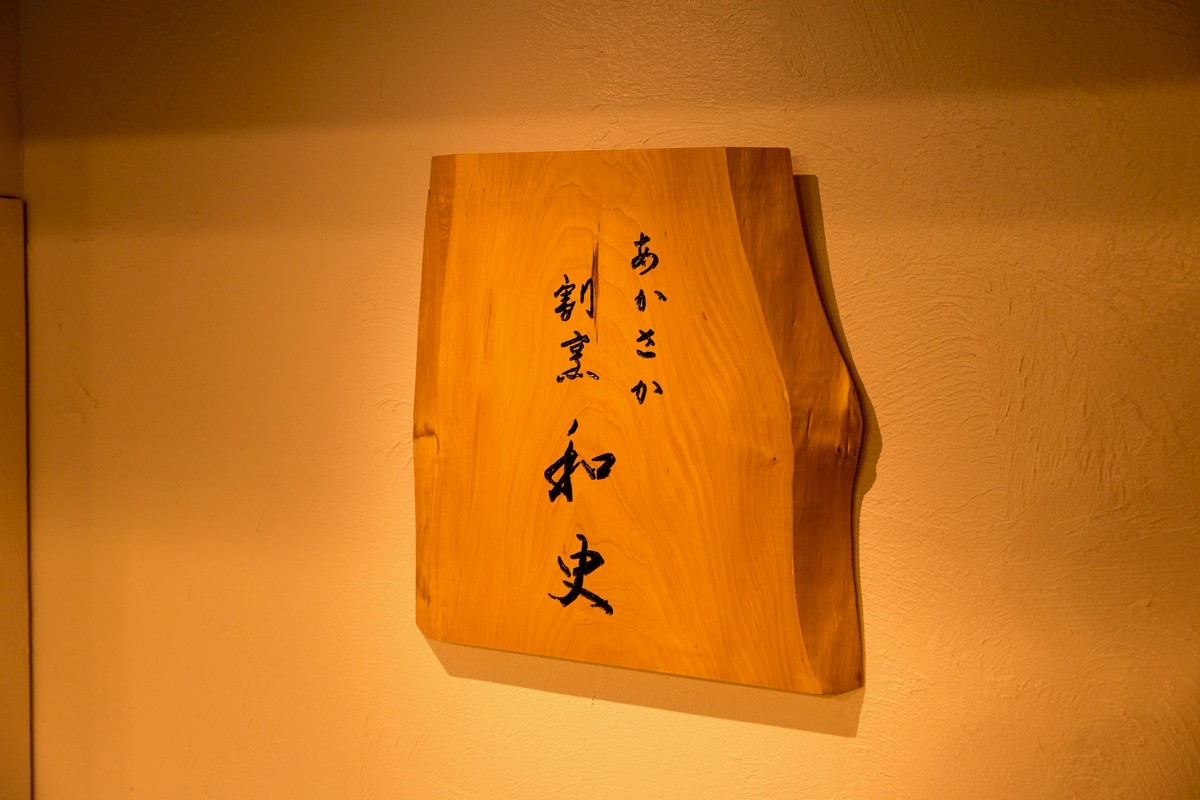 あかさか
割烹和史